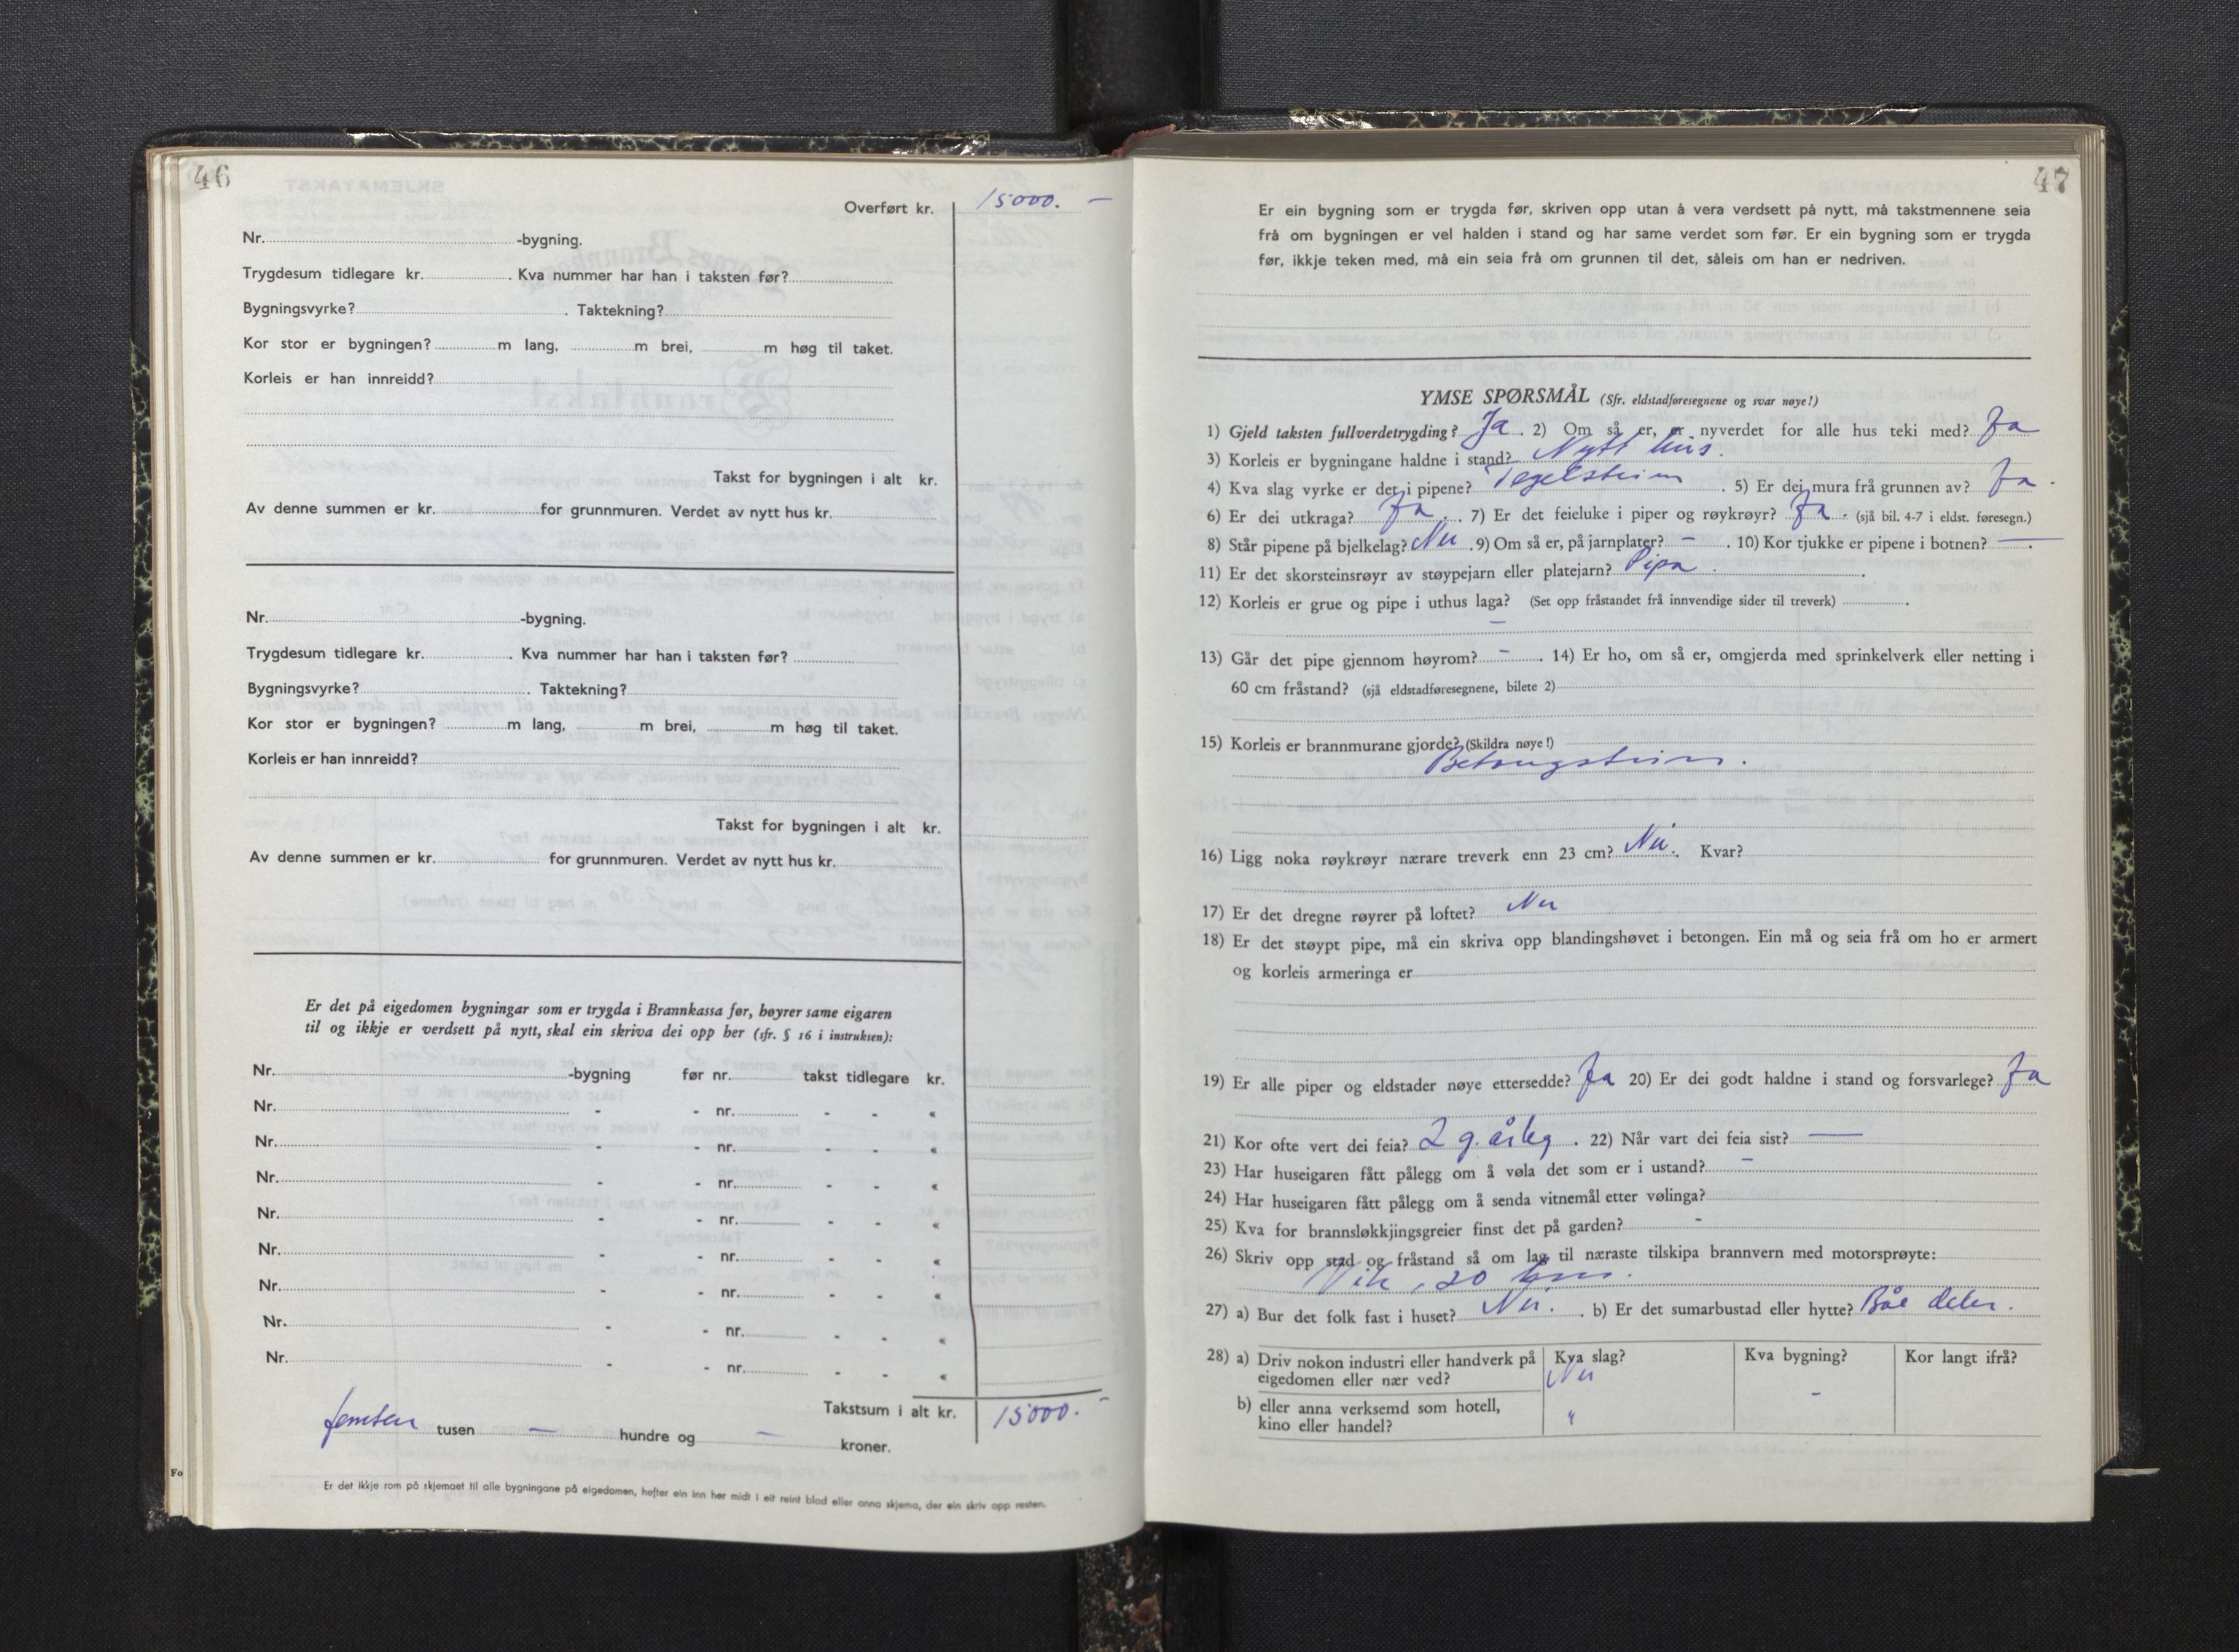 46
Overført kr. 15000. –
Nr. -bygning.
Trygdesum tidlegare kr. . Kva nummer har han i taksten før?
Bygningsvyrke? . Taktekning?
Kor stor er bygningen? m lang, m brei, m høg til taket.
Korleis er han innreidd?
Takst for bygningen i alt kr.
Av denne summen er kr. for grunnmuren. Verdet av nytt hus kr.
Nr. -bygning.
Trygdesum tidlegare kr. . Kva nummer har han i taksten før?
Bygningsvyrke? . Taktekning?
Kor stor er bygningen? m lang, m brei, m høg til taket.
Korleis er han innreidd?
Takst for bygningen i alt kr.
Av denne summen er kr. for grunnmuren. Verdet av nytt hus kr.
Er det på eigedomen bygningar som er trygda i Brannkassa før, høyrer same eigaren
til og ikkje er verdsett på nytt, skal ein skriva dei opp her (sfr. § 16 i instruksen):
Nr. -bygning før nr. takst tidlegare kr.
Nr. - - nr. - - «
Nr. - - nr. - - «
Nr. - - nr. - - «
Nr. - - nr. - - «
Nr. - - nr. - - «
Nr. - - nr. - - «
Nr. - - nr. - - «
Nr. - - nr. - - «
Takstsum i alt kr. 15000. –
femten tusen – hundre og – kroner.
Er det ikkje rom på skjemaet til alle bygningane på eigedomen, hefter ein inn her midt i eit reint blad eller anna skjema, der ein skriv opp resten.
Fo
47
Er ein bygning som er trygda før, skriven opp utan å vera verdsett på nytt, må takstmennene seia
frå om bygningen er vel halden i stand og har same verdet som før. Er ein bygning som er trygda
før, ikkje teken med, må ein seia frå om grunnen til det, såleis om han er nedriven.
YMSE SPØRSMÅL (Sfr. eldstadføresegnene og svar nøye!)
1) Gjeld taksten fullverdetrygding? Ja . 2) Om så er, er nyverdet for alle hus teki med? Ja
3) Korleis er bygningane haldne i stand? Nytt hus.
4) Kva slag vyrke er det i pipene? Tegelsteinn . 5) Er dei mura frå grunnen av? Ja .
6) Er dei utkraga? Ja . 7) Er det feieluke i piper og røykrøyr? Ja . (sjå bil. 4-7 i eldst. føresegn.)
8) Står pipene på bjelkelag? Nei . 9) Om så er, på jarnplater? – . 10) Kor tjukke er pipene i botnen? – .
11) Er det skorsteinsrøyr av støypejarn eller platejarn? Pipa .
12) Korleis er grue og pipe i uthus laga? (Set opp fråstandet frå innvendige sider til treverk) .
–
13) Går det pipe gjennom høyrom? – . 14) Er ho, om så er, omgjerda med sprinkelverk eller netting i
60 cm fråstand? (sjå eldstadføresegnene, bilete 2)
15) Korleis er brannmurane gjorde? (Skildra nøye!)
Betongstein.
16) Ligg noka røykrøyr nærare treverk enn 23 cm? Nei. Kvar?
17) Er det dregne røyrer på loftet? Nei
18) Er det støypt pipe, må ein skriva opp blandingshøvet i betongen. Ein må og seia frå om ho er armert
og korleis armeringa er
19) Er alle piper og eldstader nøye ettersedde? Ja 20) Er dei godt haldne i stand og forsvarlege? Ja
21) Kor ofte vert dei feia? 2 g. årleg . 22) Når vart dei feia sist? –
23) Har huseigaren fått pålegg om å vøla det som er i ustand? –
24) Har huseigaren fått pålegg om å senda vitnemål etter vølinga?
25) Kva for brannsløkkjingsgreier finst det på garden? -
26) Skriv opp stad og fråstand så om lag til næraste tilskipa brannvern med motorsprøyte:
Vik, 20 km.
27) a) Bur det folk fast i huset? Nei. . b) Er det sumarbustad eller hytte? Båe deler.
28) a) Driv nokon industri eller handverk på eigedomen eller nær ved? Kva slag? Nei Kva bygning? – Kor langt ifrå?
b) eller anna verksemd som hotell, kino eller handel? "